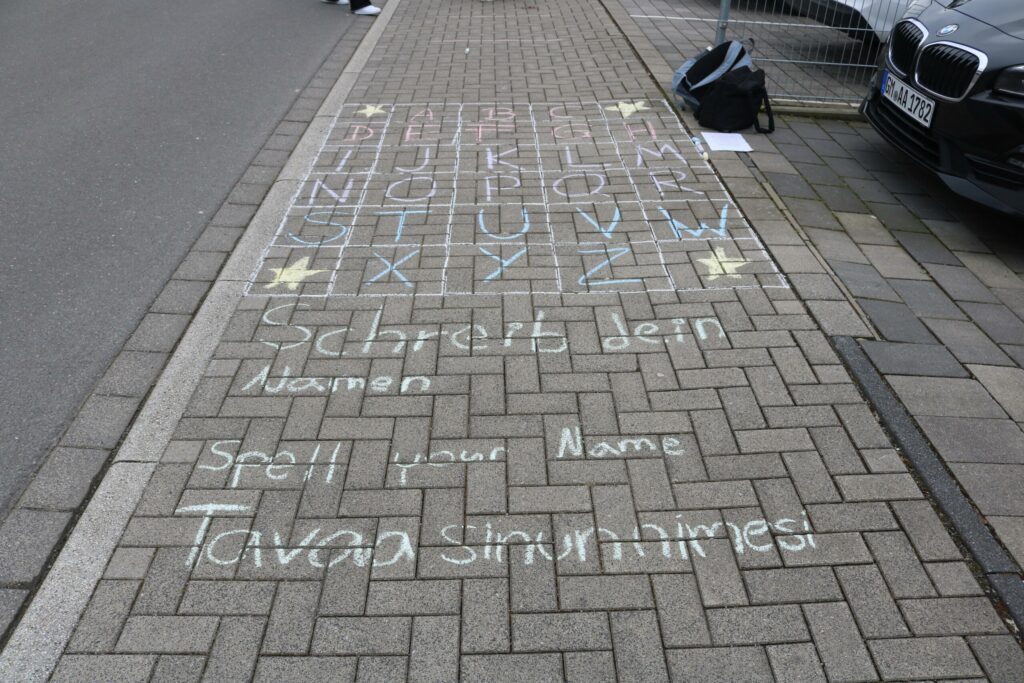 A B C
D E F G H
I J K L M
N O P Q R
S T U V W
X Y Z
Schreib dein
Namen
Spell your Name
Tavaa sinun nimesi
GM AA 1782